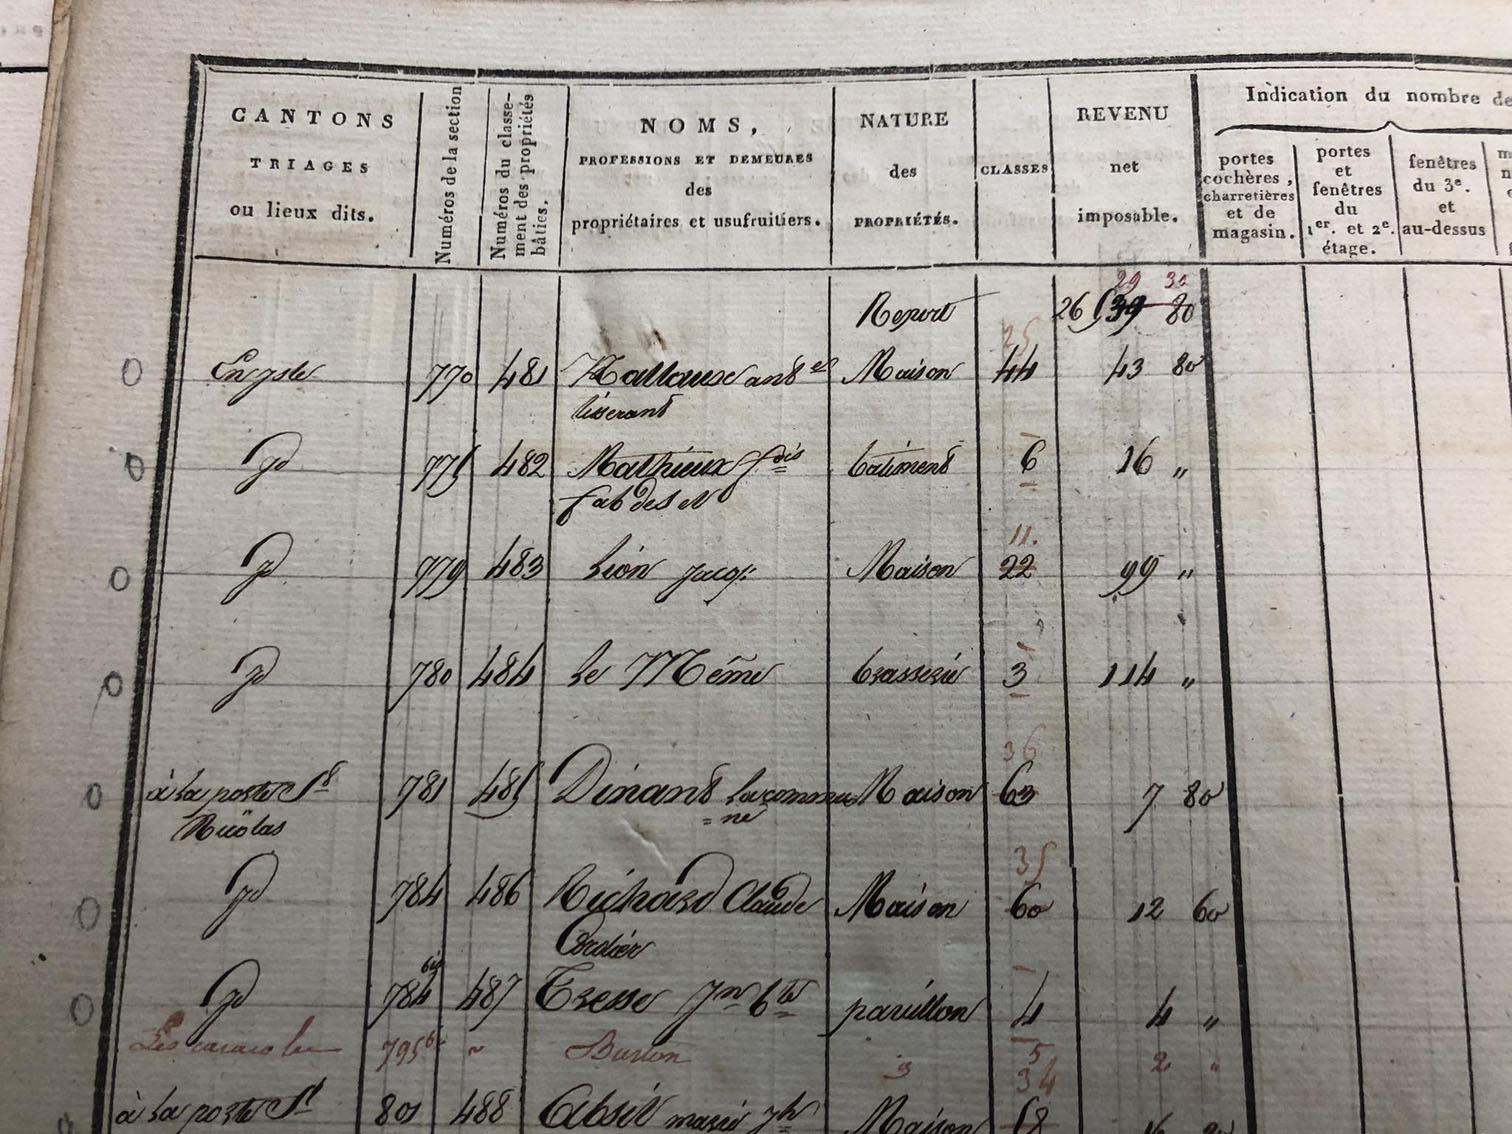 CANTONS
TRIAGES
ou lieux dits.
Numéros de la section
Numéros du classe-
ment des propriétés
bâties.
NOMS,
PROFESSIONS ET DEMEURES
des
propriétaires et usufruitiers.
NATURE
des
PROPRIÉTÉS.
CLASSES
REVENU
net
imposable.
Indication du nombre de
portes
cochères,
charretières
et de
magasin.
portes
et
fenêtres
du
1er. et 2e.
étage.
fenêtres
du 3e.
et
au-dessus
29 30
Report 26 939 80
25
770 481 ant Maison 44 43 80
tisserand
jd 482 Mathieux batiment 6 16 "
fab
11.
jd 779 483 Lion Jacq: Maison 22 99 "
jd 780 484 le Même brasserie 3 114 "
36
à la porte St 781 485 Dinant la commu Maison 63 7 80
Nicolas = ne
35
jd 784 486 Richard Claude Maison 60 12 60
Cordier
jd 784 bis 487 Tresse Jn bte pavillon 4 4 "
795 ~ Burton 5 2 "
34
à la porte St 801 488 Absil Maison